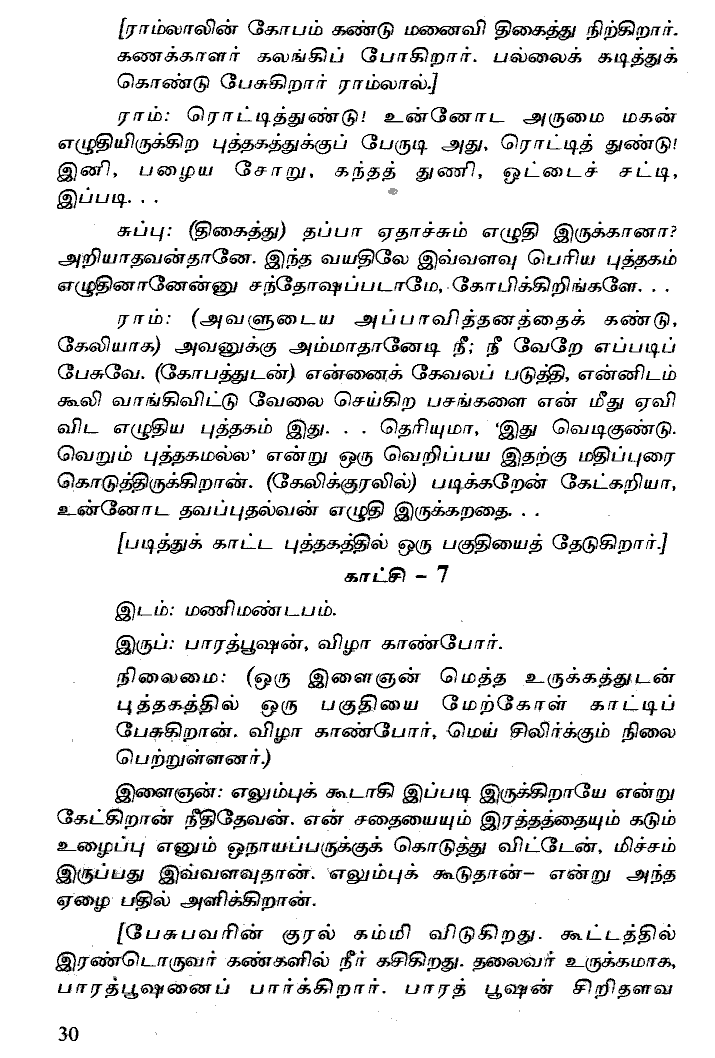 [ராம்லாலின் கோபம் கண்டு மனைவி திகைத்து நிற்கிறார்.
கணக்காளர் கலங்கிப் போகிறார். பல்லைக் கடித்துக்
கொண்டு பேசுகிறார் ராம்லால்.]
ராம்: ரொட்டித்துண்டு! உன்னோட அருமை மகன்
எழுதியிருக்கிற புத்தகத்துக்குப் பேருடி அது, ரொட்டித் துண்டு!
இனி, பழைய சோறு, கந்தத் துணி, ஓட்டைச் சட்டி,
இப்படி. . .
சுப்பு: (திகைத்து) தப்பா ஏதாச்சும் எழுதி இருக்கானா?
அறியாதவன்தானே. இந்த வயதிலே இவ்வளவு பெரிய புத்தகம்
எழுதினானேன்னு சந்தோஷப்படாமே, கோபிக்கிறிங்களே. . .
ராம்: (அவளுடைய அப்பாவித்தனத்தைக் கண்டு,
கேலியாக) அவனுக்கு அம்மாதானேடி நீ; நீ வேறே எப்படிப்
பேசுவே. (கோபத்துடன்) என்னைக் கேவலப் படுத்தி, என்னிடம்
கூலி வாங்கிவிட்டு வேலை செய்கிற பசங்களை என் மீது ஏவி
விட எழுதிய புத்தகம் இது. . . தெரியுமா, 'இது வெடிகுண்டு.
வெறும் புத்தகமல்ல' என்று ஒரு வெறிப்பய இதற்கு மதிப்புரை
கொடுத்திருக்கிறான். (கேலிக்குரலில்) படிக்கறேன் கேட்கறியா,
உன்னோட தவப்புதல்வன் எழுதி இருக்கறதை. . .
[படித்துக் காட்ட புத்தகத்தில் ஒரு பகுதியைத் தேடுகிறார்.]
காட்சி – 7
இடம்: மணிமண்டபம்.
இருப்: பாரத்பூஷன், விழா காண்போர்.
நிலைமை: (ஒரு இளைஞன் மெத்த உருக்கத்துடன்
புத்தகத்தில் ஒரு பகுதியை மேற்கோள் காட்டிப்
பேசுகிறான். விழா காண்போர், மெய் சிலிர்க்கும் நிலை
பெற்றுள்ளனர்.)
இளைஞன்: எலும்புக் கூடாகி இப்படி இருக்கிறாயே என்று
கேட்கிறான் நீதிதேவன். என் சதையையும் இரத்தத்தையும் கடும்
உழைப்பு எனும் ஓநாயப்பருக்குக் கொடுத்து விட்டேன், மிச்சம்
இருப்பது இவ்வளவுதான். எலும்புக் கூடுதான்– என்று அந்த
ஏழை பதில் அளிக்கிறான்.
[பேசுபவரின் குரல் கம்மி விடுகிறது. கூட்டத்தில்
இரண்டொருவர் கண்களில் நீர் கசிகிறது. தலைவர் உருக்கமாக,
பாரத்பூஷனைப் பார்க்கிறார். பாரத் பூஷன் சிறிதளவ
30